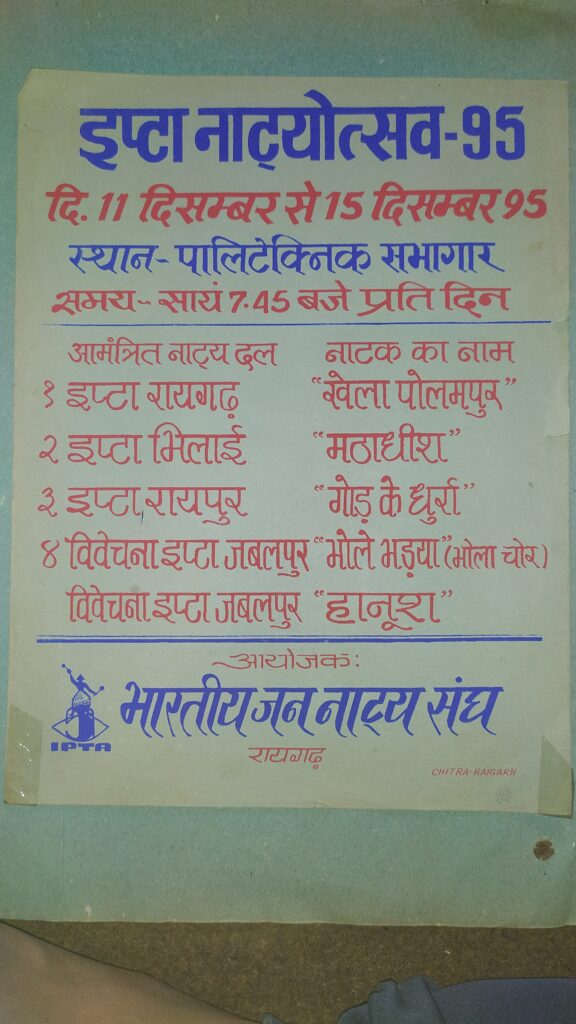 इप्टा नाट्योत्सव-95
दि. 11 दिसम्बर से 15 दिसम्बर 95
स्थान- पालिटेक्निक सभागार
समय-- सायं 7.45 बजे प्रति दिन
आमंत्रित नाट्य दल नाटक का नाम
१ इप्टा रायगढ़ "खेला पोलमपुर"
२ इप्टा भिलाई "मठाधीश"
३ इप्टा रायपुर "गोड़ के धुर्रा"
४ विवेचना इप्टा जबलपुर "भोले भड़या" (भोला चोर)
विवेचना इप्टा जबलपुर "हानूश"
आयोजक:
भारतीय जन नाट्य संघ
IPTA
रायगढ़
CHITRA-RAIGARH